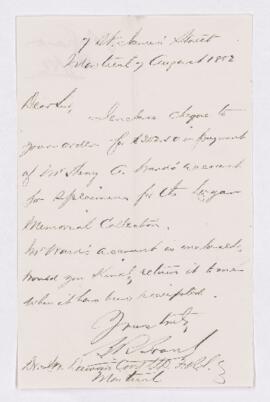 7 St. James Street
Montreal 9 August 1882
Dear Sir,
I enclose cheque to
your order for $252.50 in payment
of Mr Henry A. Ward's account
for specimens for the Logan
Memorial Collection.
Mr Ward's account is enclosed,
would you kindly return it to me
when it has been receipted.
Yours truly,
G R Grant
Dr. Wm. Dawson C.M.G. LLD. F.R.S.
Montreal